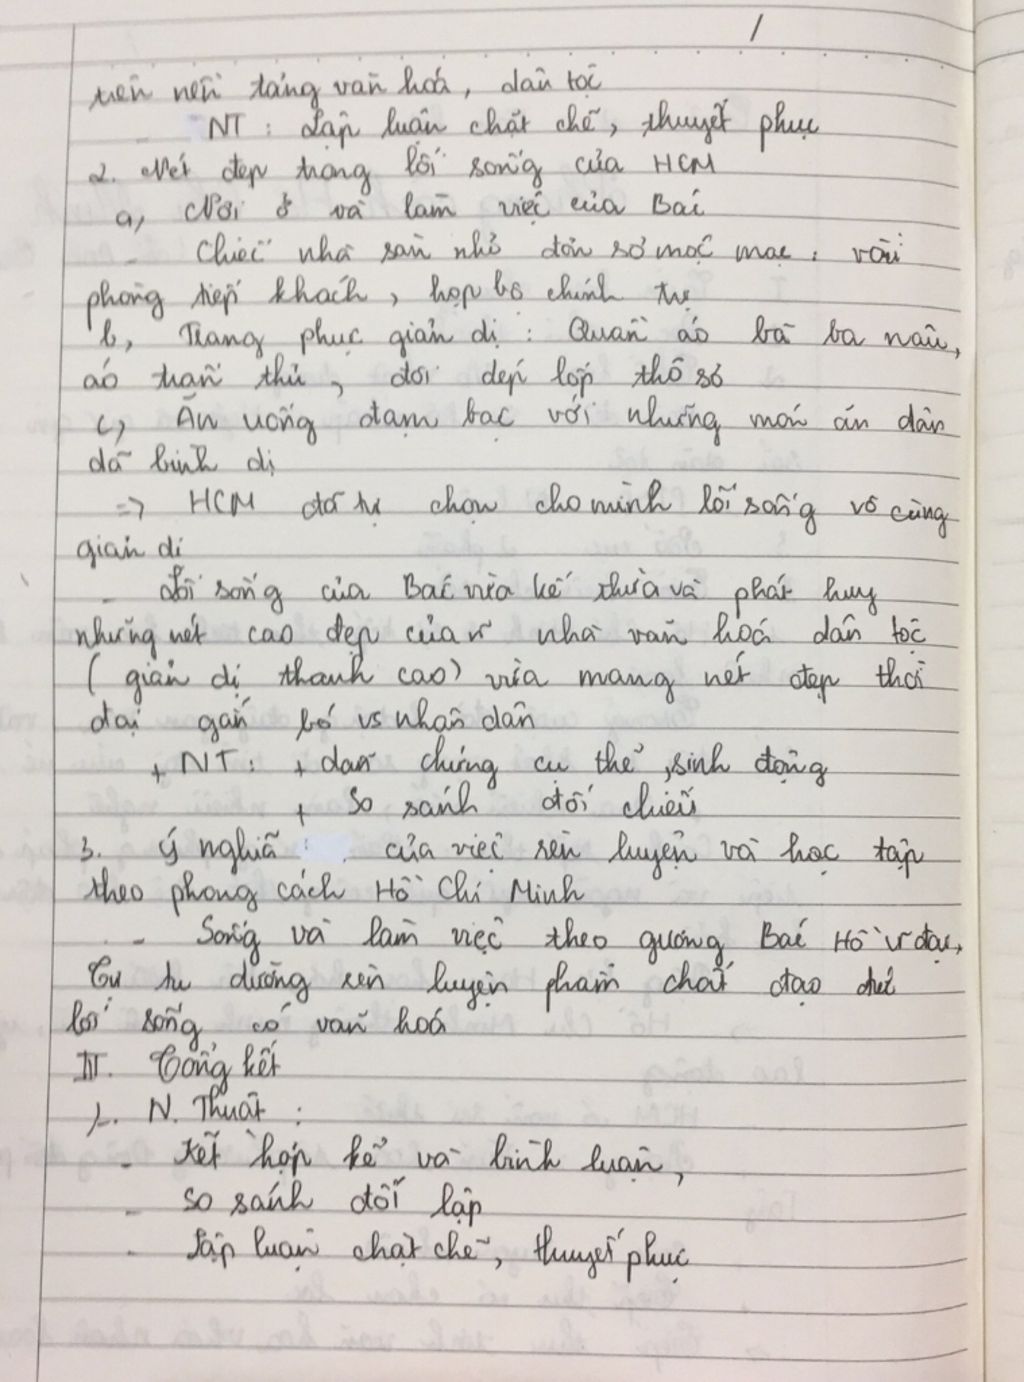 /
trên nền tảng văn hoá, dân tộc
NT: Lập luận chặt chẽ, thuyết phục
2. Nét đẹp trong lối sống của HCM
a, Nơi ở và làm việc của Bác
- Chiếc nhà sàn nhỏ đơn sơ mộc mạc: vài
phòng tiếp khách, họp bộ chính trị
b, Trang phục giản dị: Quần áo bà ba nâu,
áo trấn thủ, đôi dép lốp thô sơ
c, Ăn uống đạm bạc với những món ăn dân
dã bình dị
=> HCM đã tự chọn cho mình lối sống vô cùng
giản dị
- Lối sống của Bác vừa kế thừa và phát huy
những nét cao đẹp của nhà văn hoá dân tộc
(giản dị thanh cao) vừa mang nét đẹp thời
đại gắn bó vs nhân dân
+ NT: + dẫn chứng cụ thể, sinh động
+ So sánh đối chiếu
3. Ý nghĩa của việc rèn luyện và học tập
theo phong cách Hồ Chí Minh
- Sống và làm việc theo gương Bác Hồ vĩ đại,
Tự tu dưỡng rèn luyện phẩm chất đạo đức
lối sống có văn hoá
III. Tổng kết
1. N. Thuật:
- Kết hợp kể và bình luận,
- So sánh đối lập
- Lập luận chặt chẽ, thuyết phục